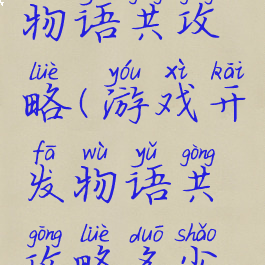 物语共攻
lüè yóu xì kāi
略(游戏开
fā wù yǔ gòng
发物语共
gōng lüè duō shǎo
攻略多少